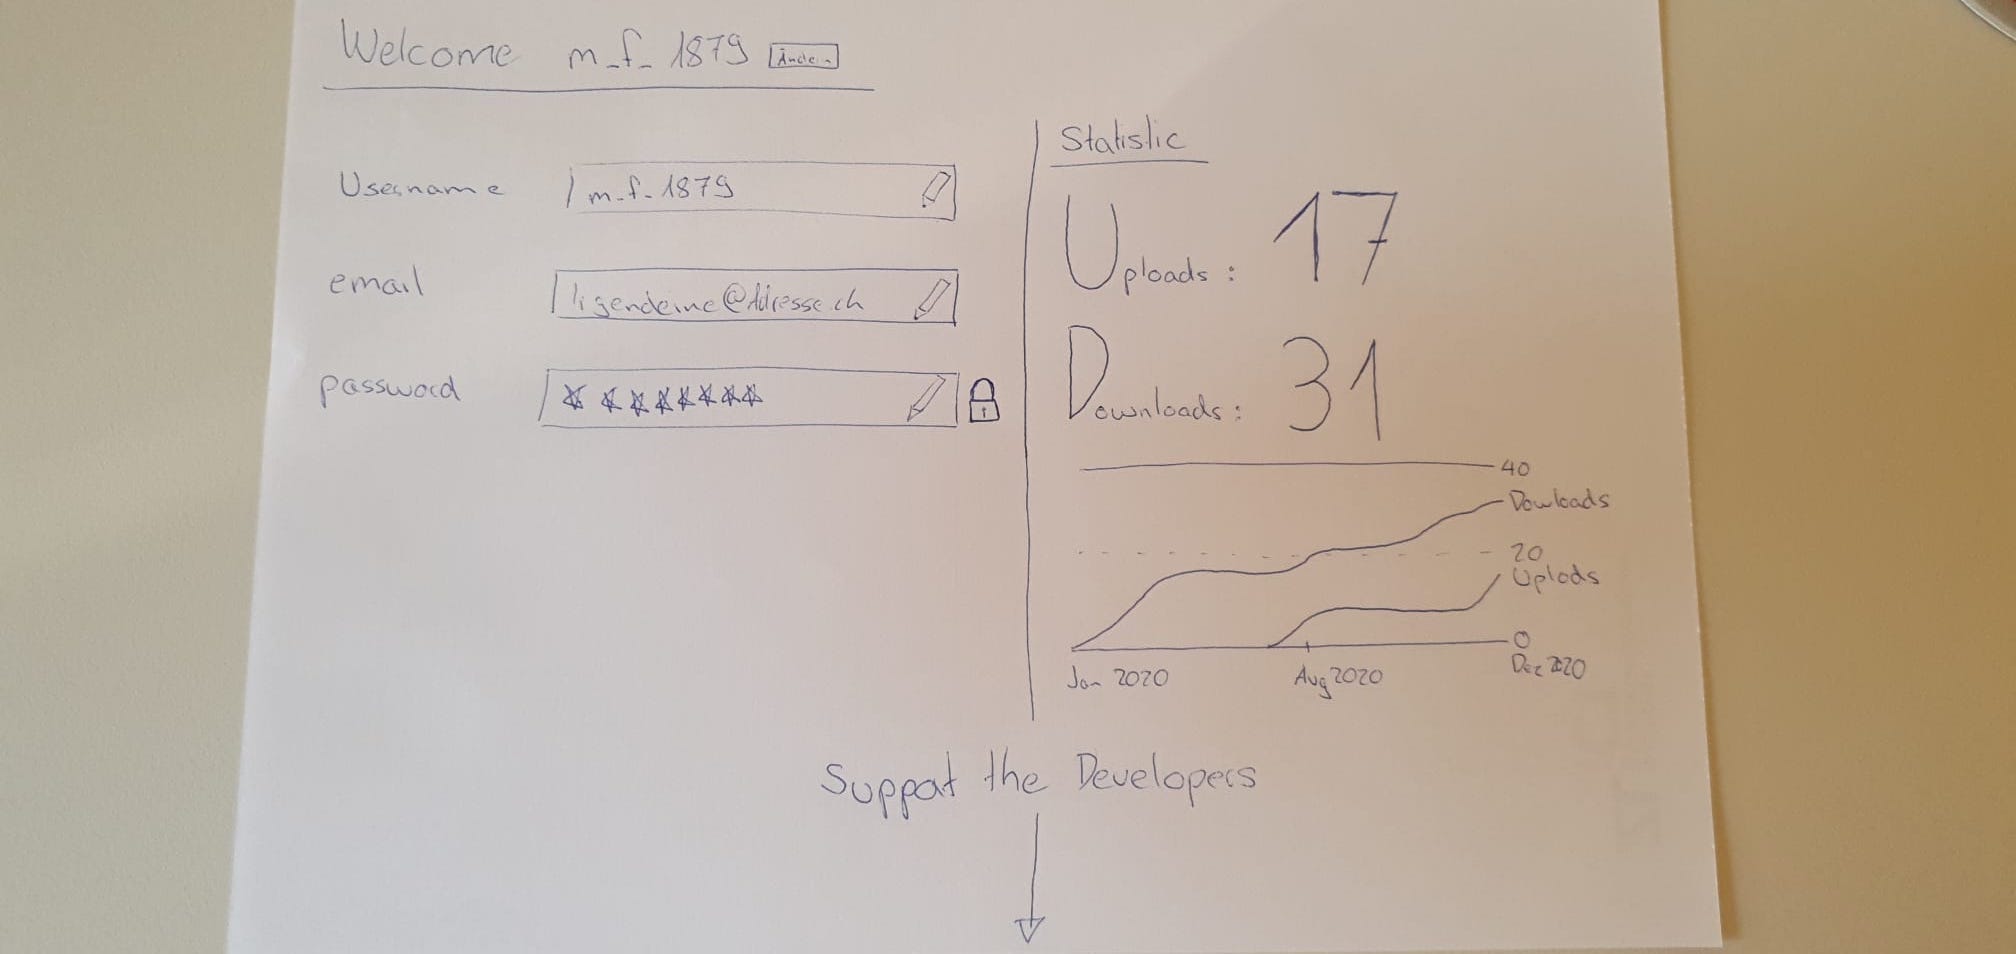 Welcome m_f_1879 Ändern
Username m_f_1879
email irgendeine@Adresse.ch
password ********
Statistic
Uploads: 17
Downloads: 31
40
Dowloads
20
Uplods
0
Jan 2020 Aug 2020 Dez 2020
Support the Developers